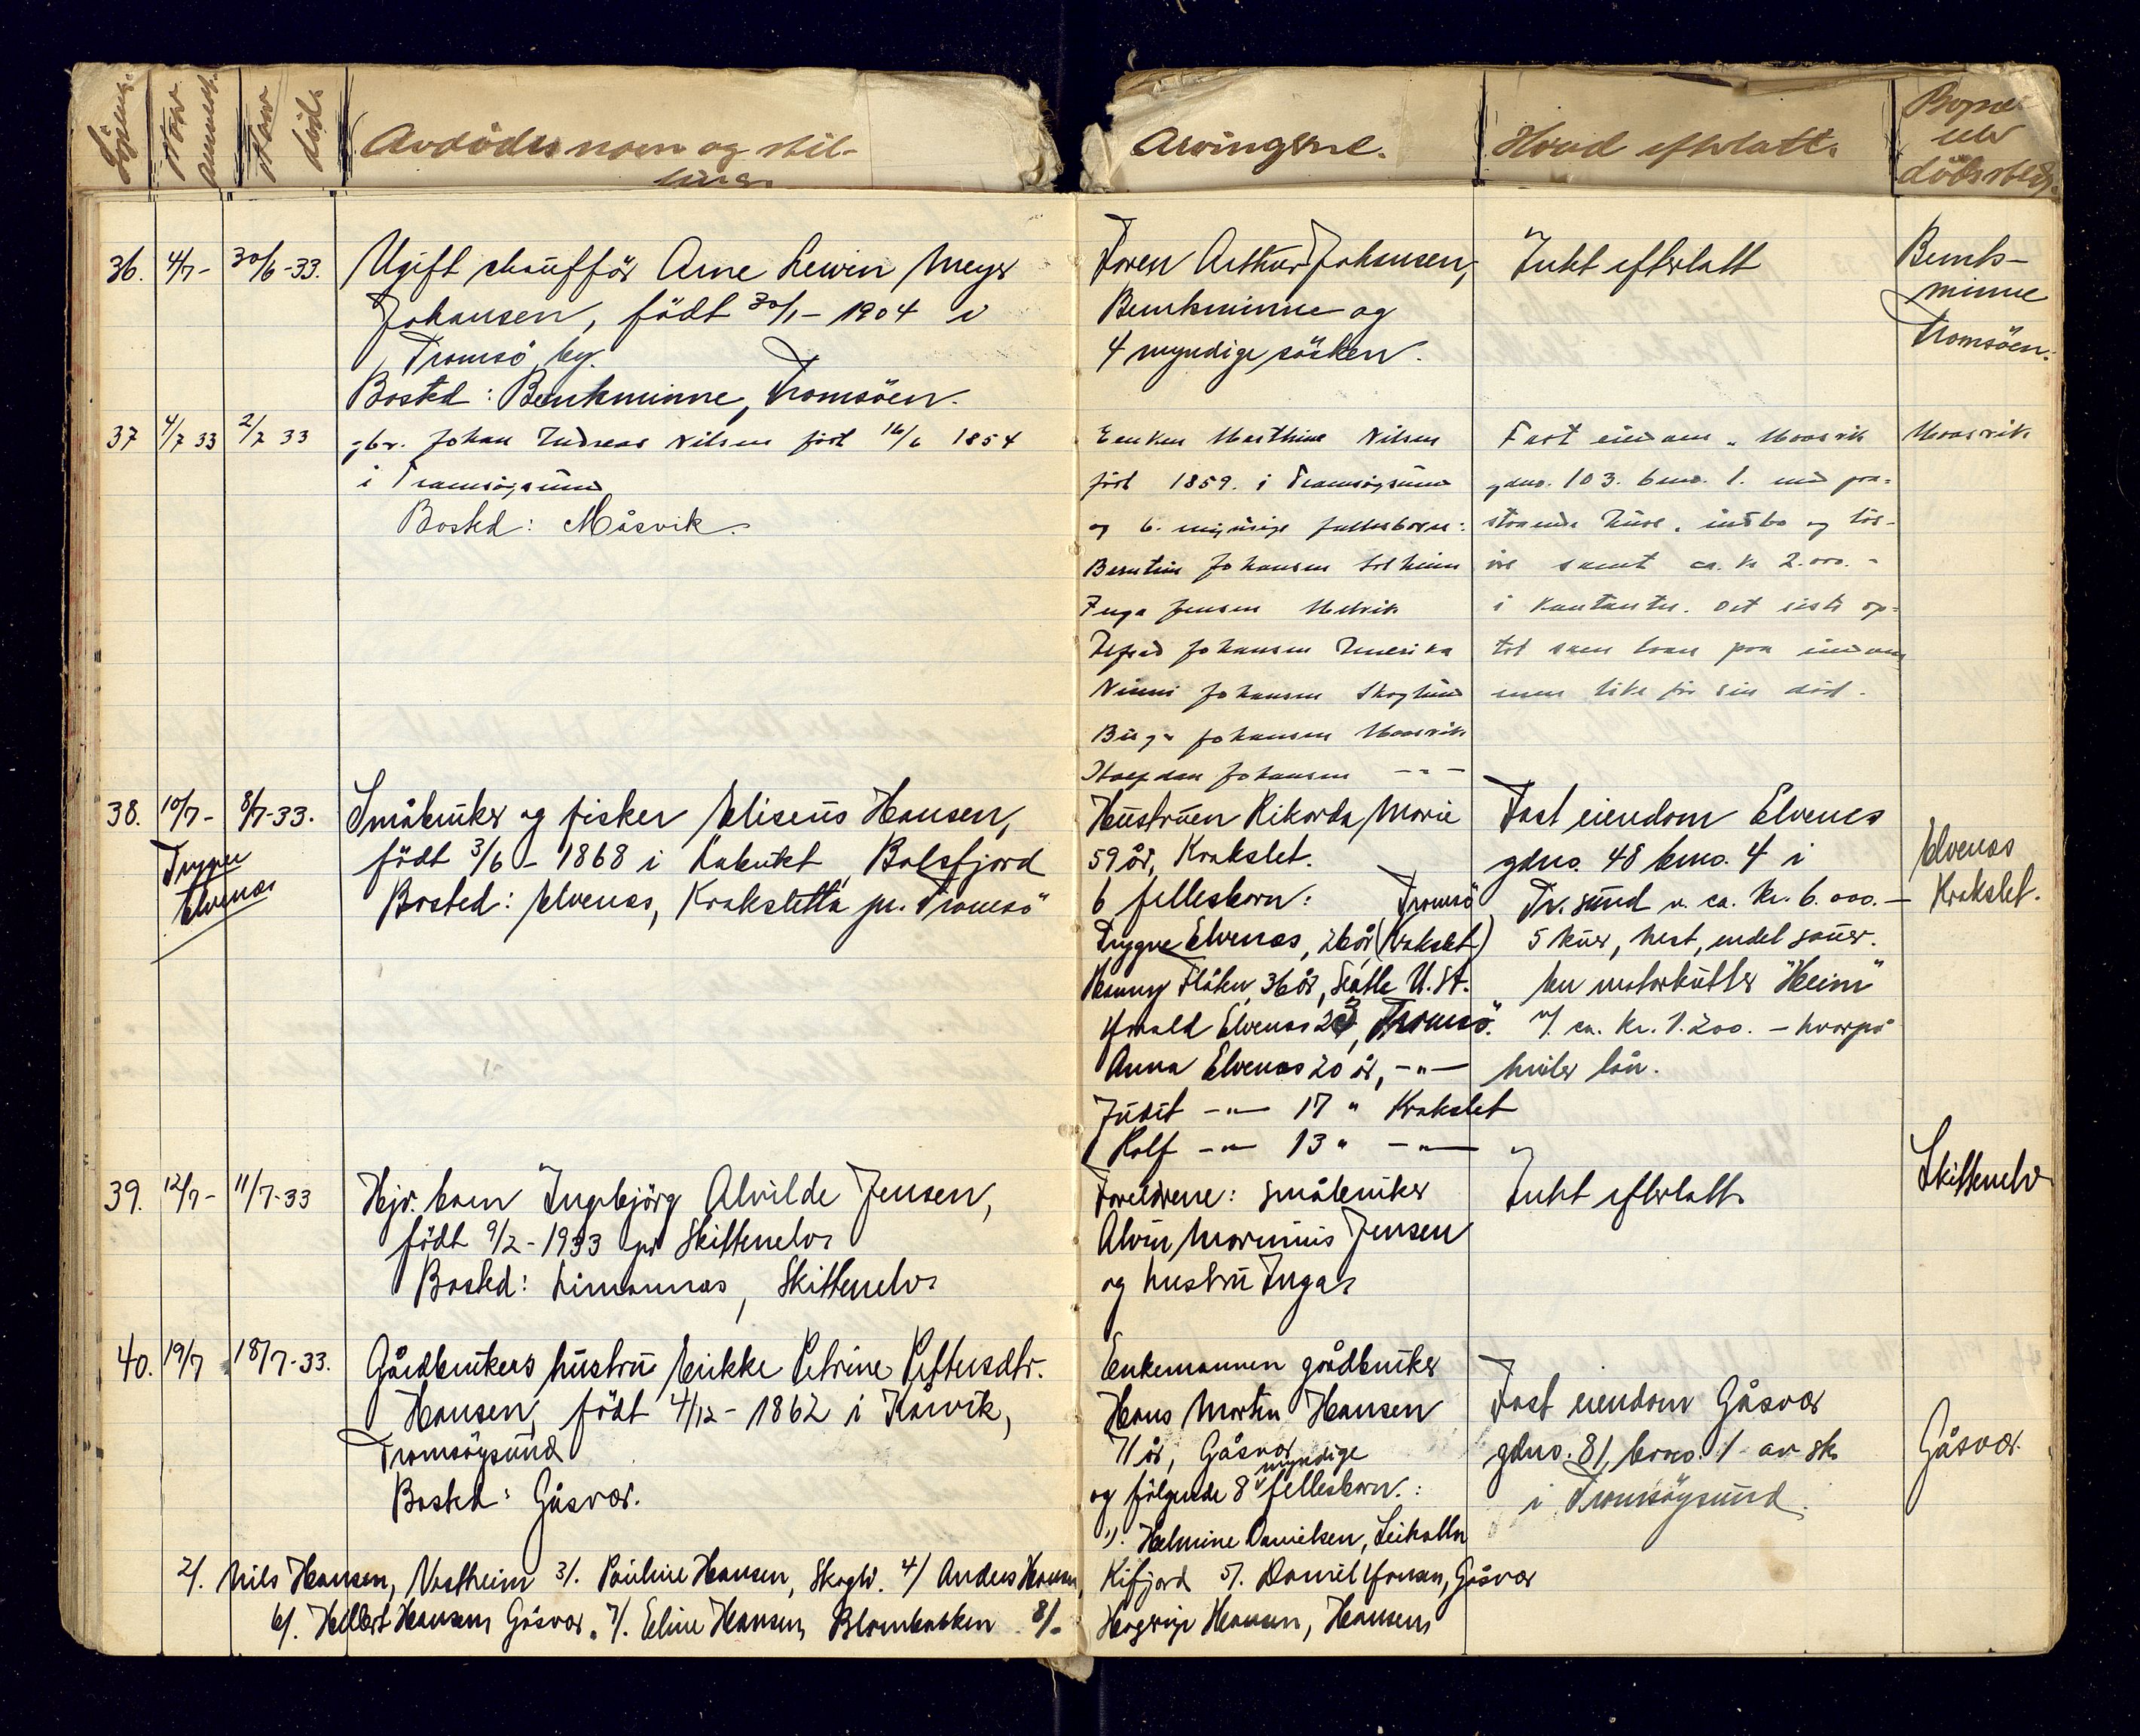 Löpenr.
Naar anmeldt.
Naar död.
Avdödes navn og stil-
ling.
Arvingerne.
Hvad efterlatt.
Bopæl
eller
dödssted.
36. 4/7- 30/6-33. Ugift chaufför Arne Lewin Meyer
Johansen, födt 30/1-1904 i
Tromsö by.
Bosted: Benkminne, Tromsöen.
Faren Arthur Johansen,
Benkminne og
4 myndige sösken.
Intet efterlatt
Benk-
minne
Tromsöen.
37 4/7 33 2/7 33 gbr. Johan Andreas Nilsen född 16/6 1854
i Tromsöysund
Bosted: Måsvik.
Enken Marthine Nilsen
född 1859. i Tromsöysund
og 6. myndige fellesbarn:
Berntine Johansen Solheim
Inga Jensen
Alfred Johansen Amerika
Johansen Skoglund
Birger Johansen Maasvik
Halfdan Johansen -"-
Fast eiendom Maasvik
gdno. 103. bno. 1. med paa-
staaende huse, indbo og lös-
öre samt ca. kr 2.000.-
i kontanter. Det siste op-
tat som laan paa eiendom
men like för sin död.
Maasvik
38. 10/7- 8/7-33. Småbruker og fisker Eliseus Hansen,
födt 3/6-1868 i Balsfjord
Bosted: Elvenes, Krokslettå pr. Tromsö
Trygve
Elvenes
Hustruen Rikorda Marie
59 år, Krokslet.
6 fellesborn: Tromsö
Trygve Elvenes, 26 år, (Krokslet)
Flåten 36 år, Seatle U.St.
Harald Elvenes 23, Tromsö.
Anna Elvenes 20 år, -"-
Judit -"- 17 " Krokslet
Rolf -"- 13 " -"-
Fast eiendom Elvenes
gdno. 48 bno. 4 i
Tr.sund v. ca. kr. 6.000.-
5 kuer, hest, endel sauer.
En motorkutter "Heim"
v/ ca. kr. 1.200. - hvorpå
hviler lån.
Elvenes
Krokslet.
39. 12/7- 11/7-33 Hjv. barn Ingebjörg Alvilde Jensen,
födt 9/2-1933 på Skittenelv.
Bosted: Limannes, Skittenelv.
Foreldrene: småbruker
Alvin Marinius Jensen
og hustru Inga.
Intet efterlatt.
Skittenelv
40. 19/7 18/7-33. Gårdbrukers hustru Erikke Petrine Pettersdtr.
Hansen, födt 4/12-1862 i Kårvik,
Tromsöysund
Bosted: Gåsvær.
Enkemannen gårdbruker
Hans Martin Hansen
71 år, Gåsvær
og fölgende 8 myndige fellesbarn.:
1). Helmine Danielsen,
Fast eiendom Gåsvær
gdno. 81, brno. 1 av sk.
i Tromsöysund.
Gåsvær
2/. Nils Hansen, Nastheim 3/. Pauline Hansen, 4/ Anders Hansen, Kifjord 5/. Daniel Hansen, Gåsvær
6/. Helbert Hansen Gåsvær. 7/. Eline Hansen, Blombakken. 8/. Hansen, Hansens